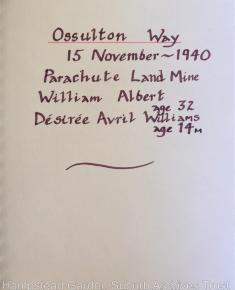 Ossulton Way
15 November ~ 1940
Parachute Land Mine
William Albert
age 32
Désirée Avril Williams
age 14M
Hampstead Garden Suburb Archives Trust